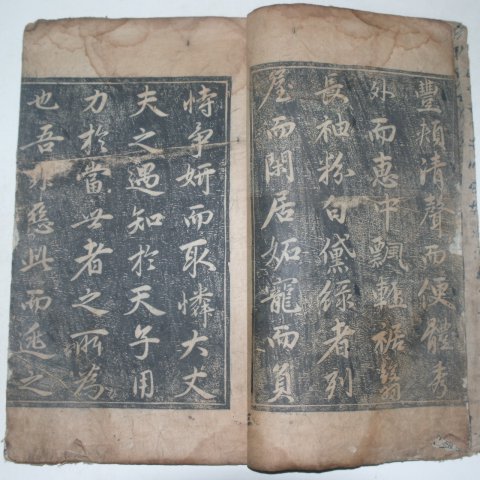 豐頰清聲而便體秀
外而惠中飄輕裾翳
長袖粉白黛綠者列
屋而閑居妬寵而負
恃爭妍而取憐大丈
夫之遇知於天子用
力於當世者之所為
也吾非惡此而逃之